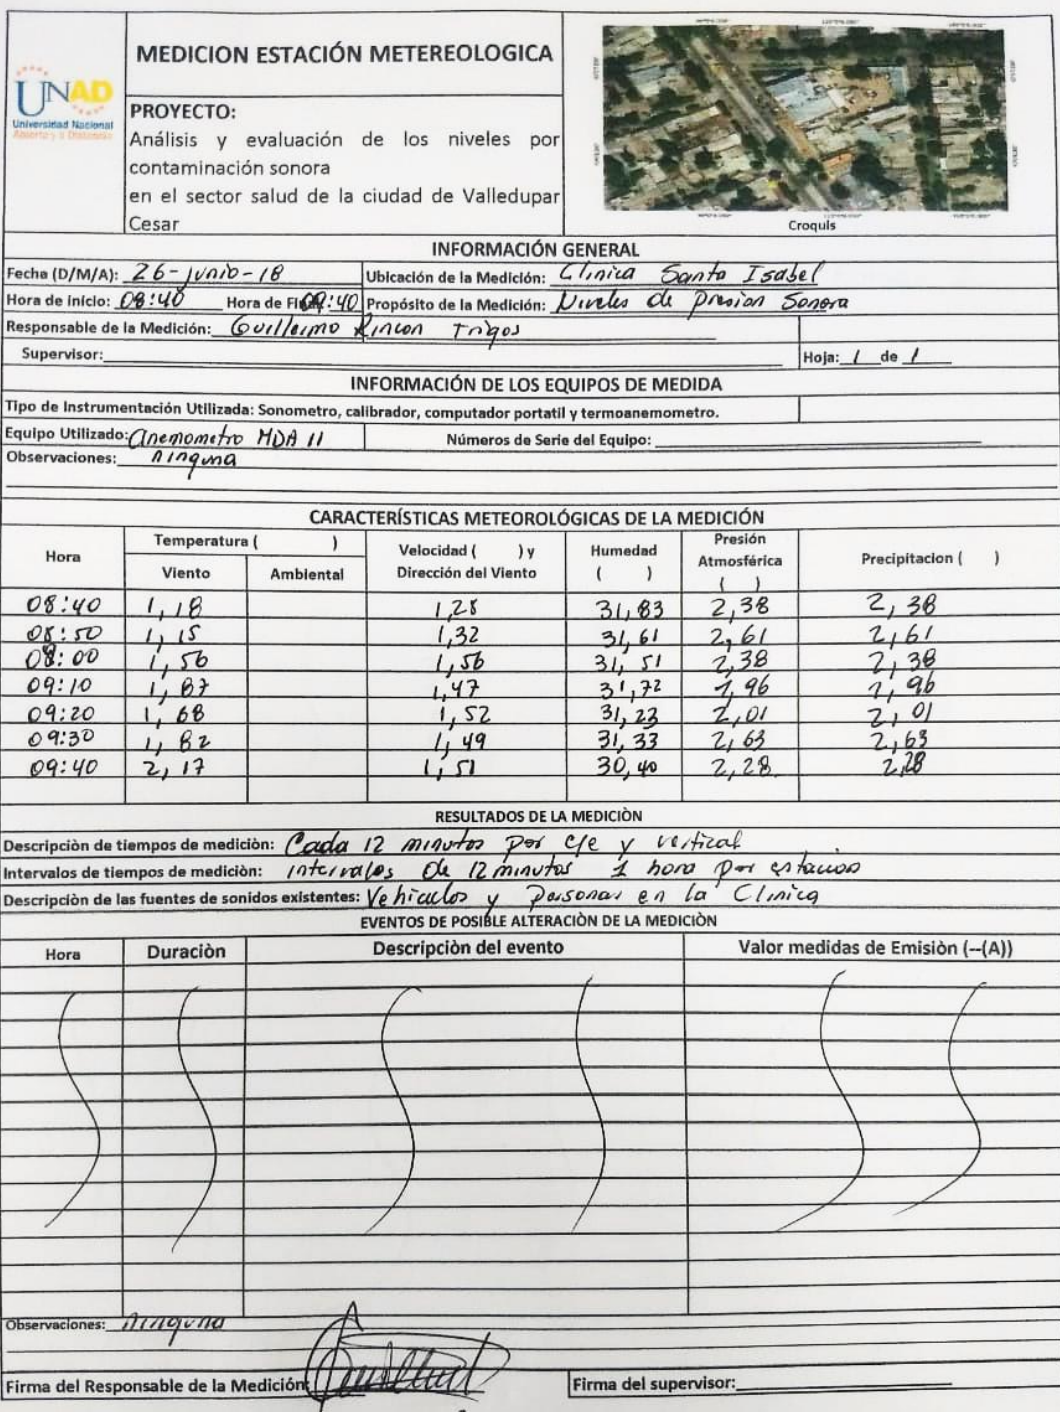 UNAD
Universidad Nacional
Abierta y a Distancia
MEDICION ESTACIÓN METEREOLOGICA
PROYECTO:
Análisis y evaluación de los niveles por
contaminación sonora
en el sector salud de la ciudad de Valledupar
Cesar
Croquis
INFORMACIÓN GENERAL
Fecha (D/M/A): 26-junio-18 Ubicación de la Medición: Clinica Santa Isabel
Hora de inicio: 08:40 Hora de Fi 09:40 Propósito de la Medición: Niveles de presion Sonora
Responsable de la Medición: Guillermo Rincon Trigos
Supervisor: Hoja: 1 de 1
INFORMACIÓN DE LOS EQUIPOS DE MEDIDA
Tipo de Instrumentación Utilizada: Sonometro, calibrador, computador portatil y termoanemometro.
Equipo Utilizado: anemometro MDA 11 Números de Serie del Equipo:
Observaciones: ninguna
CARACTERÍSTICAS METEOROLÓGICAS DE LA MEDICIÓN
Hora Temperatura ( ) Velocidad ( ) y Dirección del Viento Humedad ( ) Presión Atmosférica ( ) Precipitacion ( )
Viento Ambiental
08:40 1,18 1,28 31,83 2,38 2,38
08:50 1,15 1,32 31,61 2,61 2,61
08:00 1,56 1,56 31,51 2,38 2,38
09:10 1,87 1,47 31,72 1,96 1,96
09:20 1,68 1,52 31,23 2,01 2,01
09:30 1,82 1,49 31,33 2,63 2,63
09:40 2,17 1,51 30,40 2,28 2,28
RESULTADOS DE LA MEDICIÒN
Descripciòn de tiempos de mediciòn: Cada 12 minutos por eje y vertical
Intervalos de tiempos de mediciòn: intervalos de 12 minutos 1 hora por estacion
Descripciòn de las fuentes de sonidos existentes: Vehiculos y personas en la Clinica
EVENTOS DE POSIBLE ALTERACIÒN DE LA MEDICIÒN
Hora Duraciòn Descripciòn del evento Valor medidas de Emisiòn (--(A))
Observaciones: ninguna
Firma del Responsable de la Medición:
Firma del supervisor: